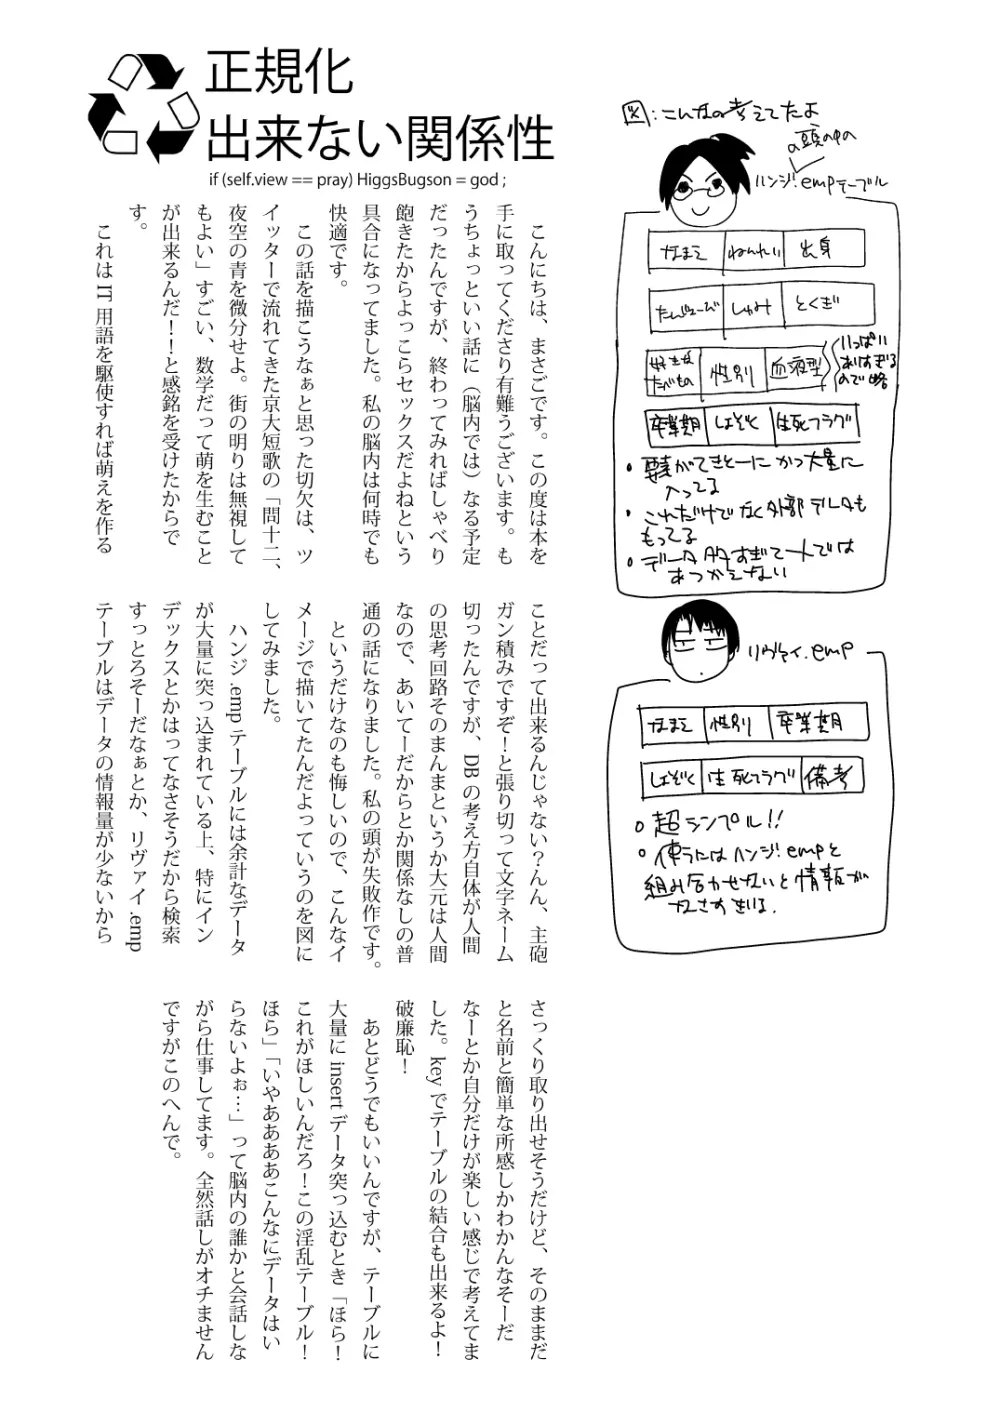 正規化
出来ない関係性
if (self.view == pray) HiggsBugson = god ;
こんにちは、まさごです。この度は本を
手に取ってくださり有難うございます。も
うちょっといい話に（脳内では）なる予定
だったんですが、終わってみればしゃべり
飽きたからよっこらセックスだよねという
具合になってました。私の脳内は何時でも
快適です。
この話を描こうなぁと思った切欠は、ツ
イッターで流れてきた京大短歌の「問十二、
夜空の青を微分せよ。街の明りは無視して
もよい」すごい、数学だって萌を生むこと
が出来るんだ！！と感銘を受けたからで
す。
これは IT 用語を駆使すれば萌えを作る
ことだって出来るんじゃない？んん、主砲
ガン積みですぞ！と張り切って文字ネーム
切ったんですが、DB の考え方自体が人間
の思考回路そのまんまというか大元は人間
なので、あいてーだからとか関係なしの普
通の話になりました。私の頭が失敗作です。
というだけなのも悔しいので、こんなイ
メージで描いてたんだよっていうのを図に
してみました。
ハンジ .emp テーブルには余計なデータ
が大量に突っ込まれている上、特にイン
デックスとかはってなさそうだから検索
すっとろそーだなぁとか、リヴァイ .emp
テーブルはデータの情報量が少ないから
さっくり取り出せそうだけど、そのままだ
と名前と簡単な所感しかわかんなそーだ
なーとか自分だけが楽しい感じで考えてま
した。key でテーブルの結合も出来るよ！
破廉恥！
あとどうでもいいんですが、テーブルに
大量に insert データ突っ込むとき「ほら！
これがほしいんだろ！この淫乱テーブル！
ほら」「いやああああこんなにデータはい
らないよぉ…」って脳内の誰かと会話しな
がら仕事してます。全然話しがオチません
ですがこのへんで。
図：こんなの考えてたよ
の頭の中の
ハンジ.empテーブル
なまえ ねんれい 出身
たんじょーび しゅみ とくぎ
好きな
たべもの 性別 血液型
いっぱい
ありすぎる
ので略
卒業期 しょぞく 生死フラグ
・要素がてきとーにかつ大量に
入ってる
・これだけでなく外部デルタも
もってる
・データ多すぎて一人では
あつかえない
リヴァイ.emp
なまえ 性別 卒業期
しょぞく 生死フラグ 備考
○超シンプル!!
○使うにはハンジ.empと
組み合わせないと情報が
なさすぎる.